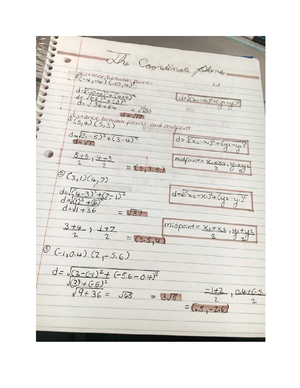 The Coordinate Plane
distance between points
d=√(x₂-x₁)²+(y₂-y₁)²
distance between points and midpoint
① (5,4)(5,3)
d=√(5-5)²+(3-4)²
d=√1
d=√(x₂-x₁)²+(y₂-y₁)²
5+5/2, 4+3/2
=(5,3.5)
midpoint= x₁+x₂/2, y₁+y₂/2
② (3,1)(4,7)
d=√(4-3)²+(7-1)²
d=√(1)²+(6)²
d=√1+36 = √37
d=√(x₂-x₁)²+(y₂-y₁)²
3+4/2, 1+7/2
=(3.5,4)
midpoint= x₁+x₂/2, y₁+y₂/2
③ (-1,0.4)(2,-5.6)
d=√(2-(-1)²+(-5.6-0.4)²
√(3)²+(-6)²
√9+36 = √45 = 3√5
-1+2/2, 0.4+(-5
=(.5,-2.6)